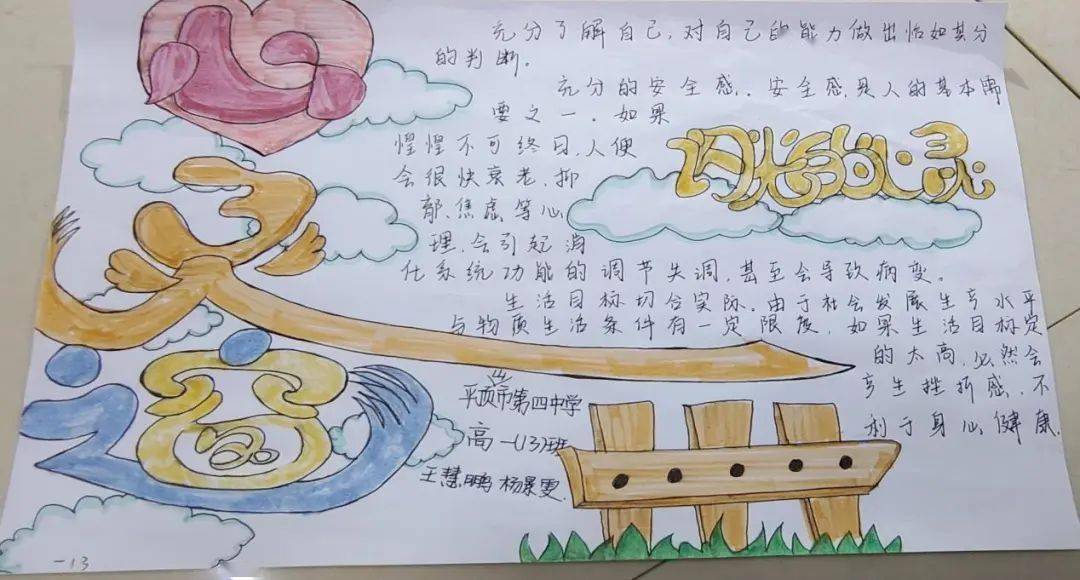 充分了解自己,对自己的能力做出恰如其分
的判断.
充分的安全感.安全感是人的基本需
要之一.如果
惶惶不可终日,人便
会很快衰老.抑
郁、焦虑等心
理,会引起消
化系统功能的调节失调,甚至会导致病变。
生活目标切合实际.由于社会发展生产水平
与物质生活条件有一定限度,如果生活目标定
的太高,必然会
产生挫折感,不
利于身心健康.
阳光的心灵
平顶山市第四中学
高一(13)班
王慧鹏 杨景雯.
一13